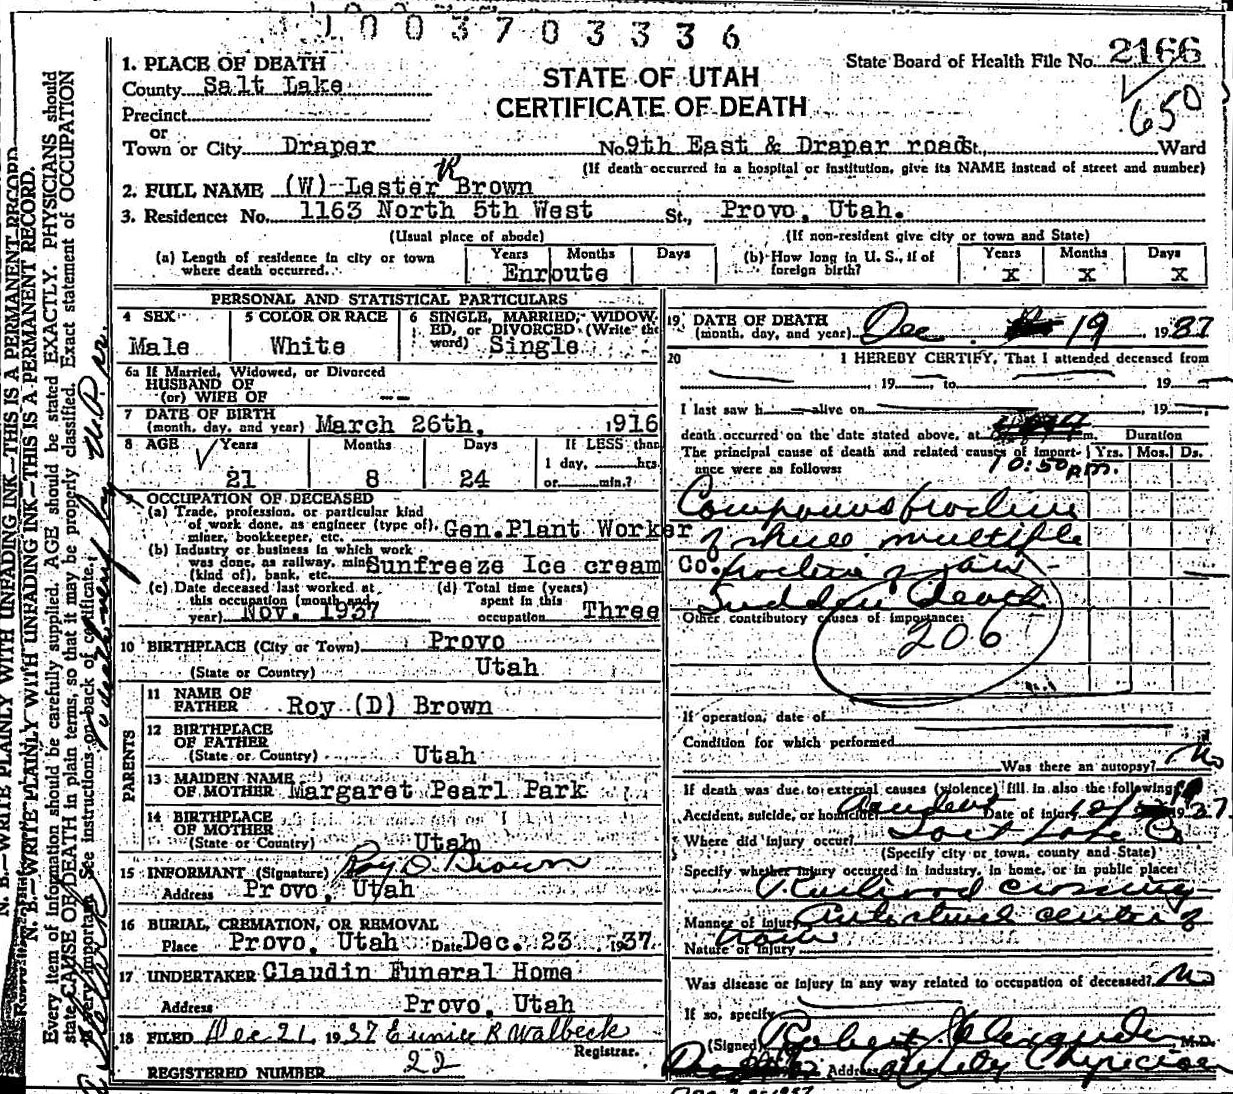 1003703336
State Board of Health File No. 2166
650
STATE OF UTAH
CERTIFICATE OF DEATH
1. PLACE OF DEATH
County Salt Lake
Precinct
or
Town or City Draper No. 9th East & Draper road St., Ward
(If death occurred in a hospital or institution, give its NAME instead of street and number)
2. FULL NAME (W) Lester R Brown
3. Residence: No. 1163 North 5th West St., Provo, Utah.
(Usual place of abode) (If non-resident give city or town and State)
(a) Length of residence in city or town where death occurred. Years Months Days Enroute
(b) How long in U. S., if of foreign birth? Years X Months X Days X
PERSONAL AND STATISTICAL PARTICULARS
4 SEX Male
5 COLOR OR RACE White
6 SINGLE, MARRIED, WIDOWED, or DIVORCED (Write the word) Single
6a If Married, Widowed, or Divorced
HUSBAND OF
(or) WIFE OF --
7 DATE OF BIRTH (month, day, and year) March 26th, 1916
8 AGE Years 21 Months 8 Days 24 If LESS than 1 day, hrs. or min.?
9 OCCUPATION OF DECEASED
(a) Trade, profession, or particular kind of work done, as engineer (type of), miner, bookkeeper, etc. Gen. Plant Worker
(b) Industry or business in which work was done, as railway, mine (kind of), bank, etc. Sunfreeze Ice cream Co.
(c) Date deceased last worked at this occupation (month and year) Nov. 1937
(d) Total time (years) spent in this occupation Three
10 BIRTHPLACE (City or Town) Provo
(State or Country) Utah
PARENTS
11 NAME OF FATHER Roy (D) Brown
12 BIRTHPLACE OF FATHER (State or Country) Utah
13 MAIDEN NAME OF MOTHER Margaret Pearl Park
14 BIRTHPLACE OF MOTHER (State or Country) Utah
15 INFORMANT (Signature) Roy D. Brown
Address Provo, Utah
16 BURIAL, CREMATION, OR REMOVAL
Place Provo, Utah Date Dec. 23 1937
17 UNDERTAKER Claudin Funeral Home
Address Provo, Utah
18 FILED Dec 21, 1937 Eunice R Walbeck
Registrar.
REGISTERED NUMBER 22
19 DATE OF DEATH (month, day, and year) Dec. 19 1937
20 I HEREBY CERTIFY, That I attended deceased from
19 to 19
I last saw h alive on 19
death occurred on the date stated above, at m. Duration
The principal cause of death and related causes of importance were as follows: Yrs. Mos. Ds.
10:50 P.M.
Compound fracture
of skull multiple
fracture of jaw
Sudden Death
Other contributory causes of importance:
206
If operation, date of
Condition for which performed
Was there an autopsy? No
If death was due to external causes (violence) fill in also the following:
Accident, suicide, or homicide? Accident Date of injury 19 1937
Where did injury occur? Salt Lake Co
(Specify city or town, county and State)
Specify whether injury occurred in industry, in home, or in public place:
Railroad crossing
Manner of Injury center of
Nature of Injury
Was disease or injury in any way related to occupation of deceased? No
If so, specify
(Signed) Robert M.D.
Address Deputy Physician
N. B.—WRITE PLAINLY WITH UNFADING INK—THIS IS A PERMANENT RECORD
N. B.—WRITE PLAINLY WITH UNFADING INK—THIS IS A PERMANENT RECORD.
Every item of information should be carefully supplied. AGE should be stated EXACTLY. PHYSICIANS should
state CAUSE OF DEATH in plain terms, so that it may be properly classified. Exact statement of OCCUPATION
is very important. See instructions on back of certificate.